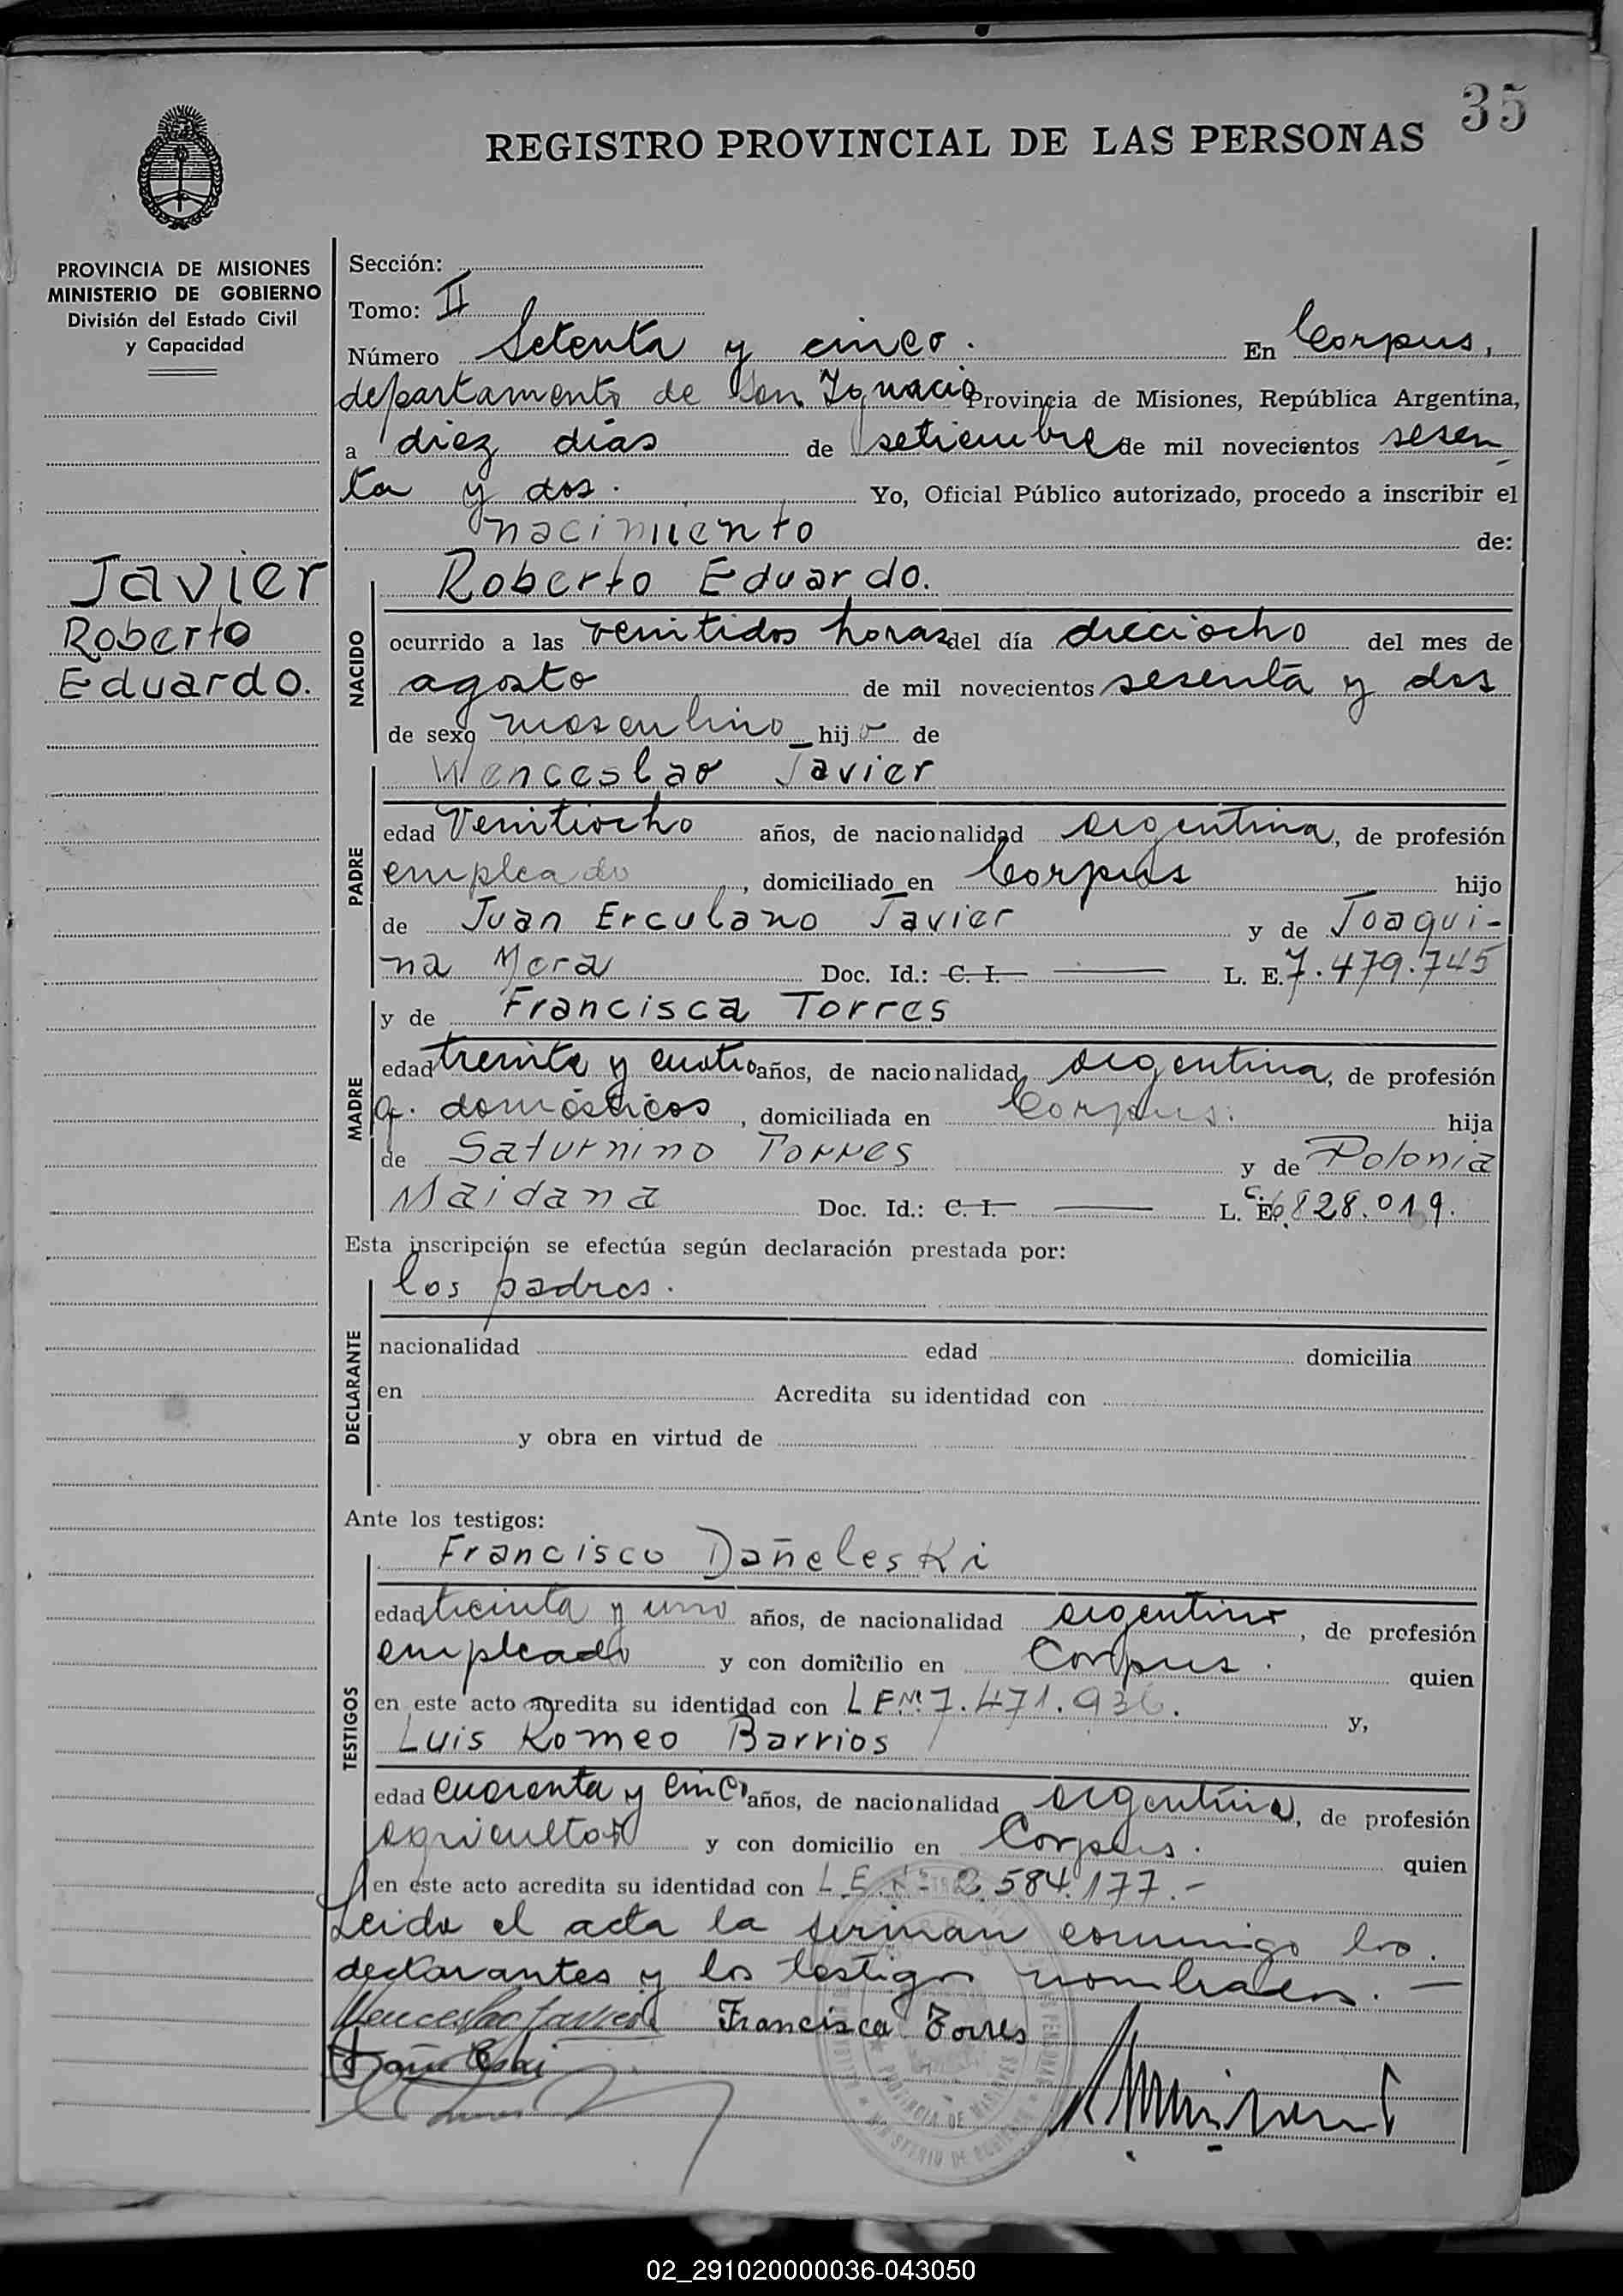 35
REGISTRO PROVINCIAL DE LAS PERSONAS
PROVINCIA DE MISIONES
MINISTERIO DE GOBIERNO
División del Estado Civil
y Capacidad
Javier
Roberto
Eduardo.
Sección:
Tomo: II
Número Setenta y cinco. En Corpus,
departamento de San Ignacio Provincia de Misiones, República Argentina,
a diez días de setiembre de mil novecientos sesen
ta y dos. Yo, Oficial Público autorizado, procedo a inscribir el
nacimiento de:
NACIDO
Roberto Eduardo.
ocurrido a las veintidos horas del día dieciocho del mes de
agosto de mil novecientos sesenta y dos
de sexo masculino hijo de
PADRE
Wenceslao Javier
edad Veintiocho años, de nacionalidad argentina, de profesión
empleado, domiciliado en Corpus hijo
de Juan Erculano Javier y de Joaqui-
na Mora Doc. Id.: C. I. L. E. 7.479.745
MADRE
y de Francisca Torres
edad treinta y cuatro años, de nacionalidad argentina, de profesión
q. domésticos, domiciliada en Corpus. hija
de Saturnino Torres y de Polonia
Maidana Doc. Id.: C. I. L. C. E. 6.828.019.
Esta inscripción se efectúa según declaración prestada por:
DECLARANTE
los padres.
nacionalidad edad domicilia
en Acredita su identidad con
y obra en virtud de
Ante los testigos:
TESTIGOS
Francisco Dañeleski
edad treinta y uno años, de nacionalidad argentino, de profesión
empleado y con domicilio en Corpus. quien
en este acto acredita su identidad con L E Nº 7.471.936. y,
Luis Romeo Barrios
edad cuarenta y cinco años, de nacionalidad argentina, de profesión
agricultor y con domicilio en Corpus. quien
en este acto acredita su identidad con L.E. Nº 2.584.177.-
Leida el acta la firman conmigo los
declarantes y los testigos nombrados. —
Wenceslao Javier Francisca Torres
Dañeleski
PROVINCIA DE MISIONES
02_291020000036-043050